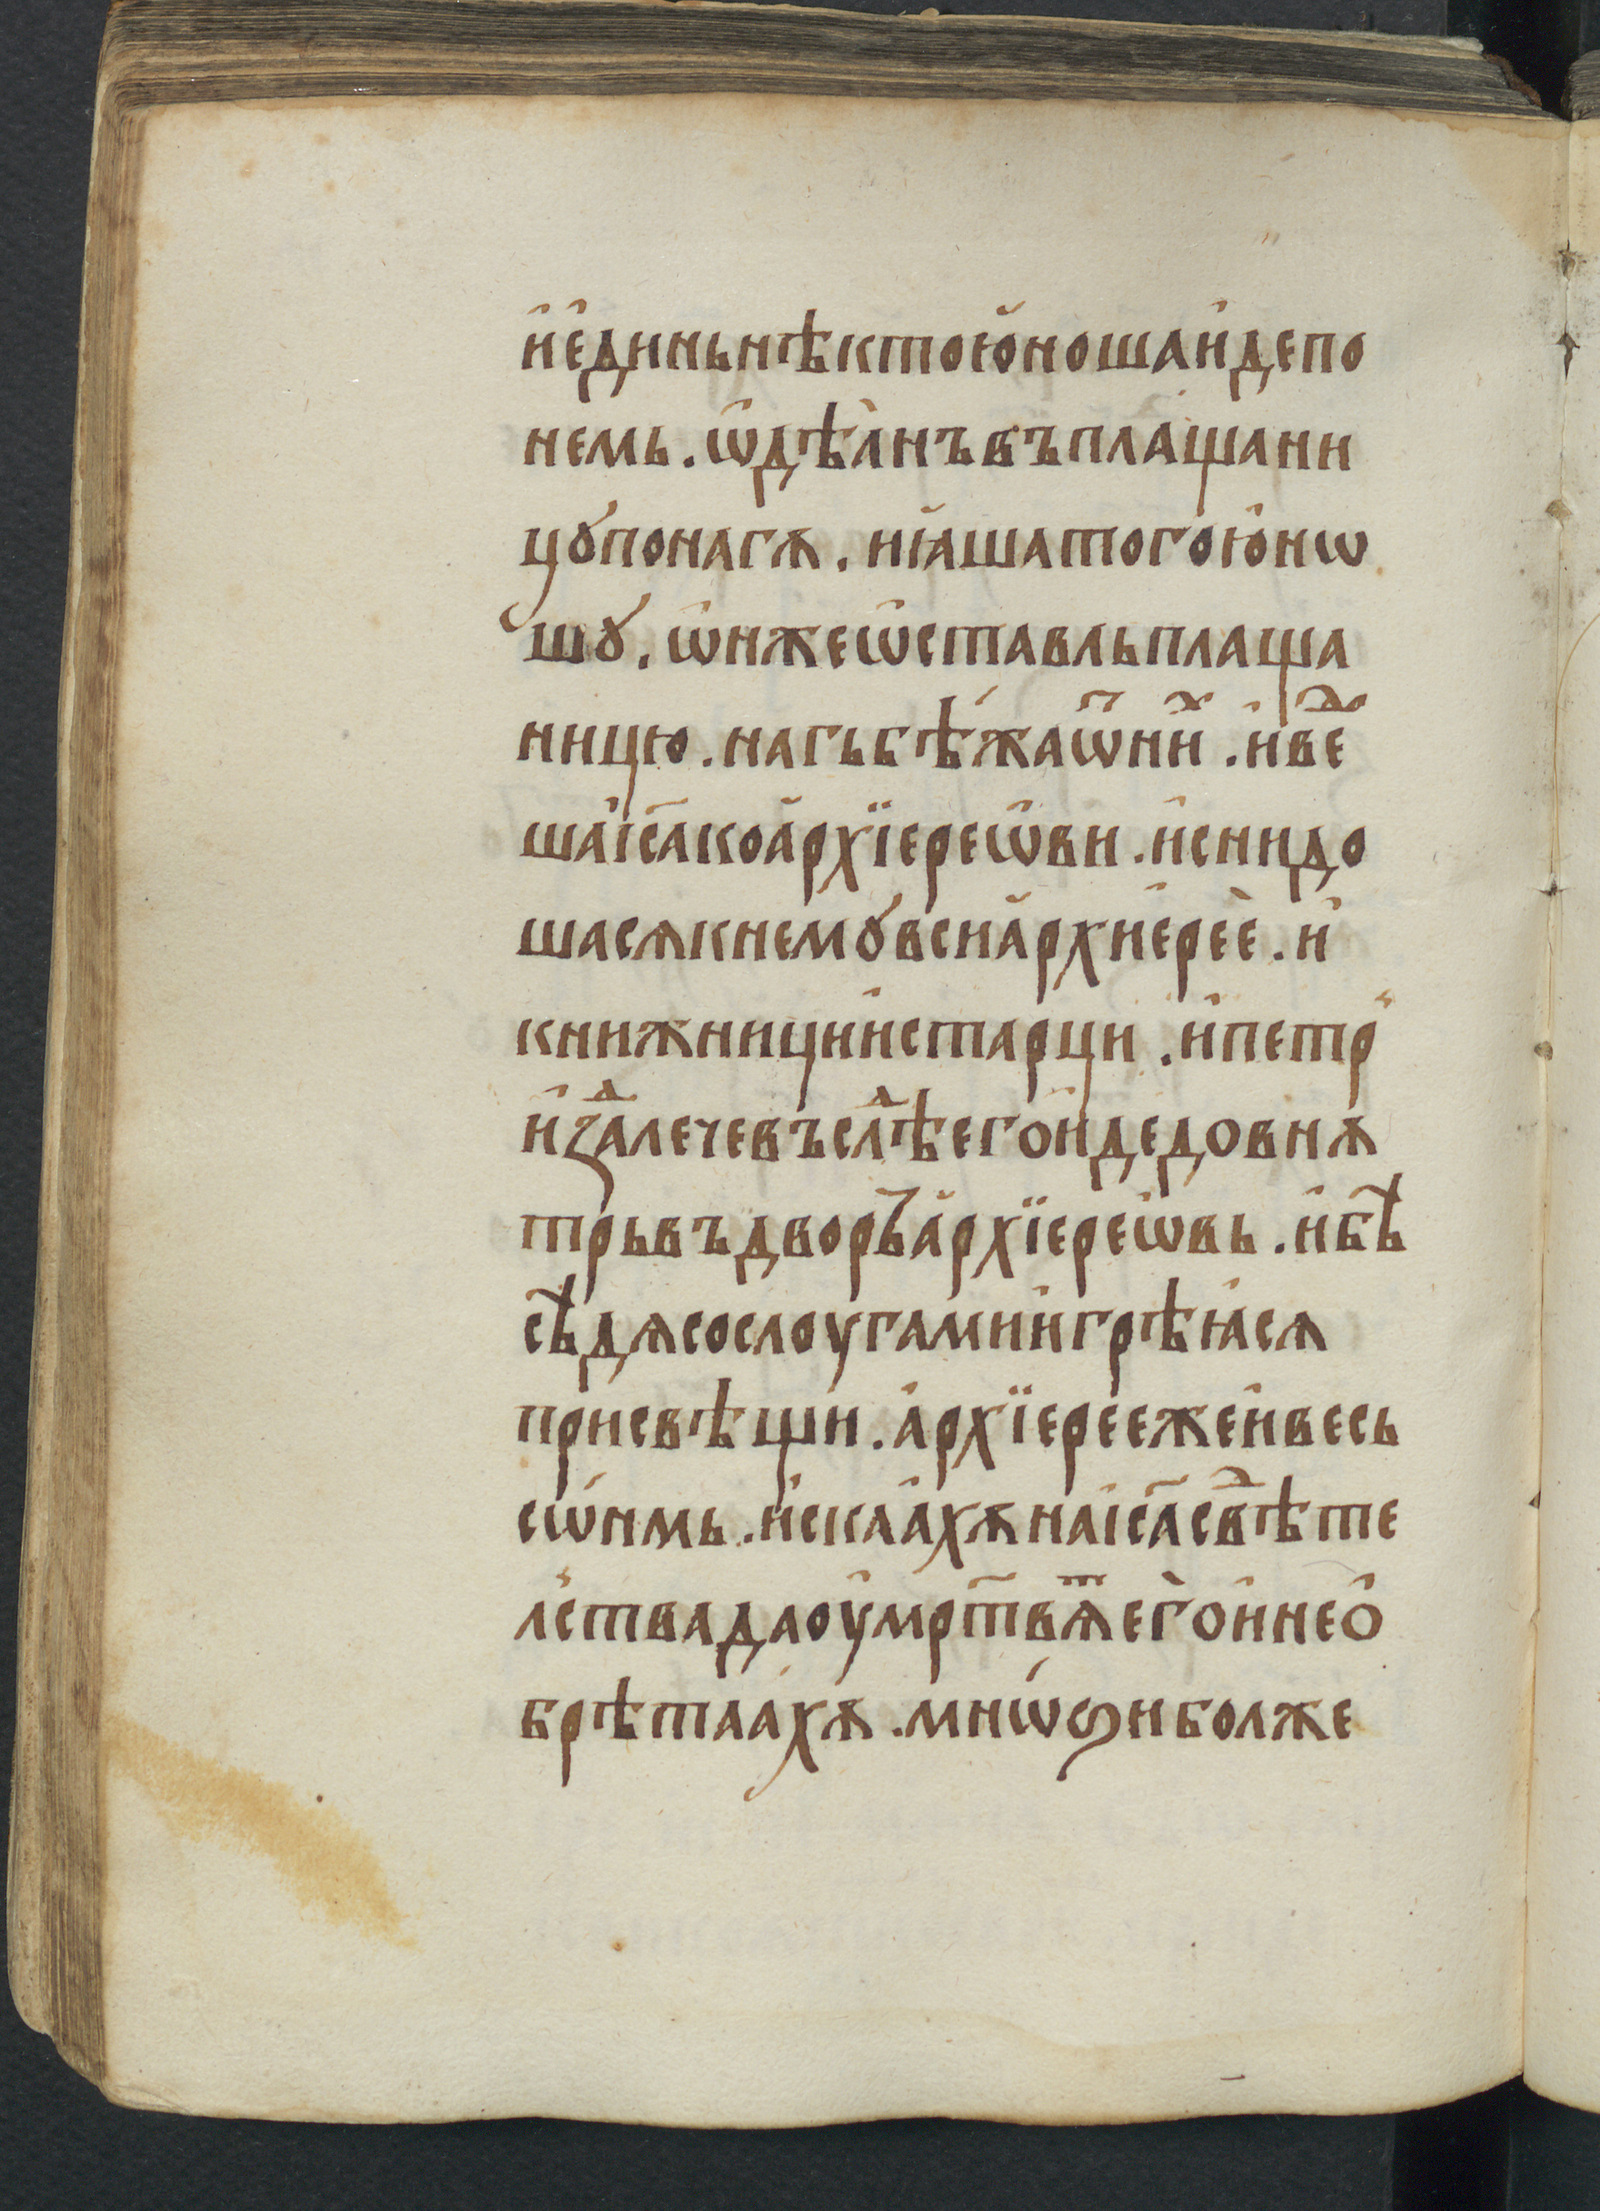 и҆е҆диньнѣктою҆ношаи҆депо
немь. ѡ҆дѣ҆ѧнъвъплащани
цꙋпонагѫ. нꙗ҆шатогою҆нѡ
шꙋ. ѡ҆нжеѡ҆ставльплаща
ницю. нагьбѣжаѿни҆ⷯ. и҆веⷣ
шаі҆с҃акоа҆рхїереѡ҆ви. и҆снидо
шасѧкнемꙋвсиа҆рхие҆рее҆. и҆
книжниции҆старци. и҆петр
и҆ꙁⷣалечевъслⷣѣегои҆дедовнѫ
трьвъдворьа҆рхїереѡ҆вь. и҆бѣ
сѣдѧсослоугамии҆грѣꙗ҆сѧ
присвѣщи. а҆рхїереежеи҆весь
сѡ҆нмь. и҆скаа҆хѫнаі҆с҃асвⷣѣте
лⸯствадаоу҆мр҃твѧⷮегои҆нео҆
брѣтаахѫ. мнѡѕиболже